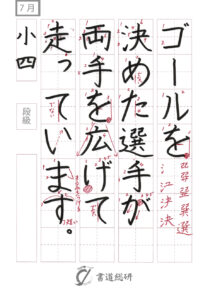 7月
小四
段級
ゴールを
決めた選手が
両手を広げて
走っています。
書道総研